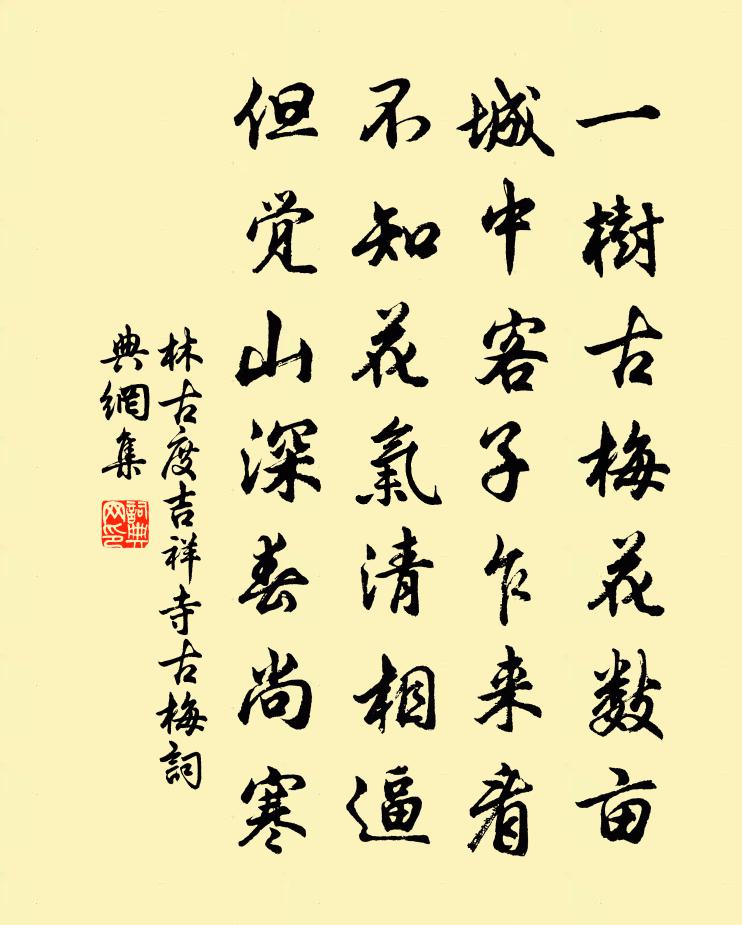 一樹古梅花数亩
城中客子乍来看
不知花氣清相逼
但觉山深春尚寒
林古度吉祥寺古梅詞
典網集
詞典网印